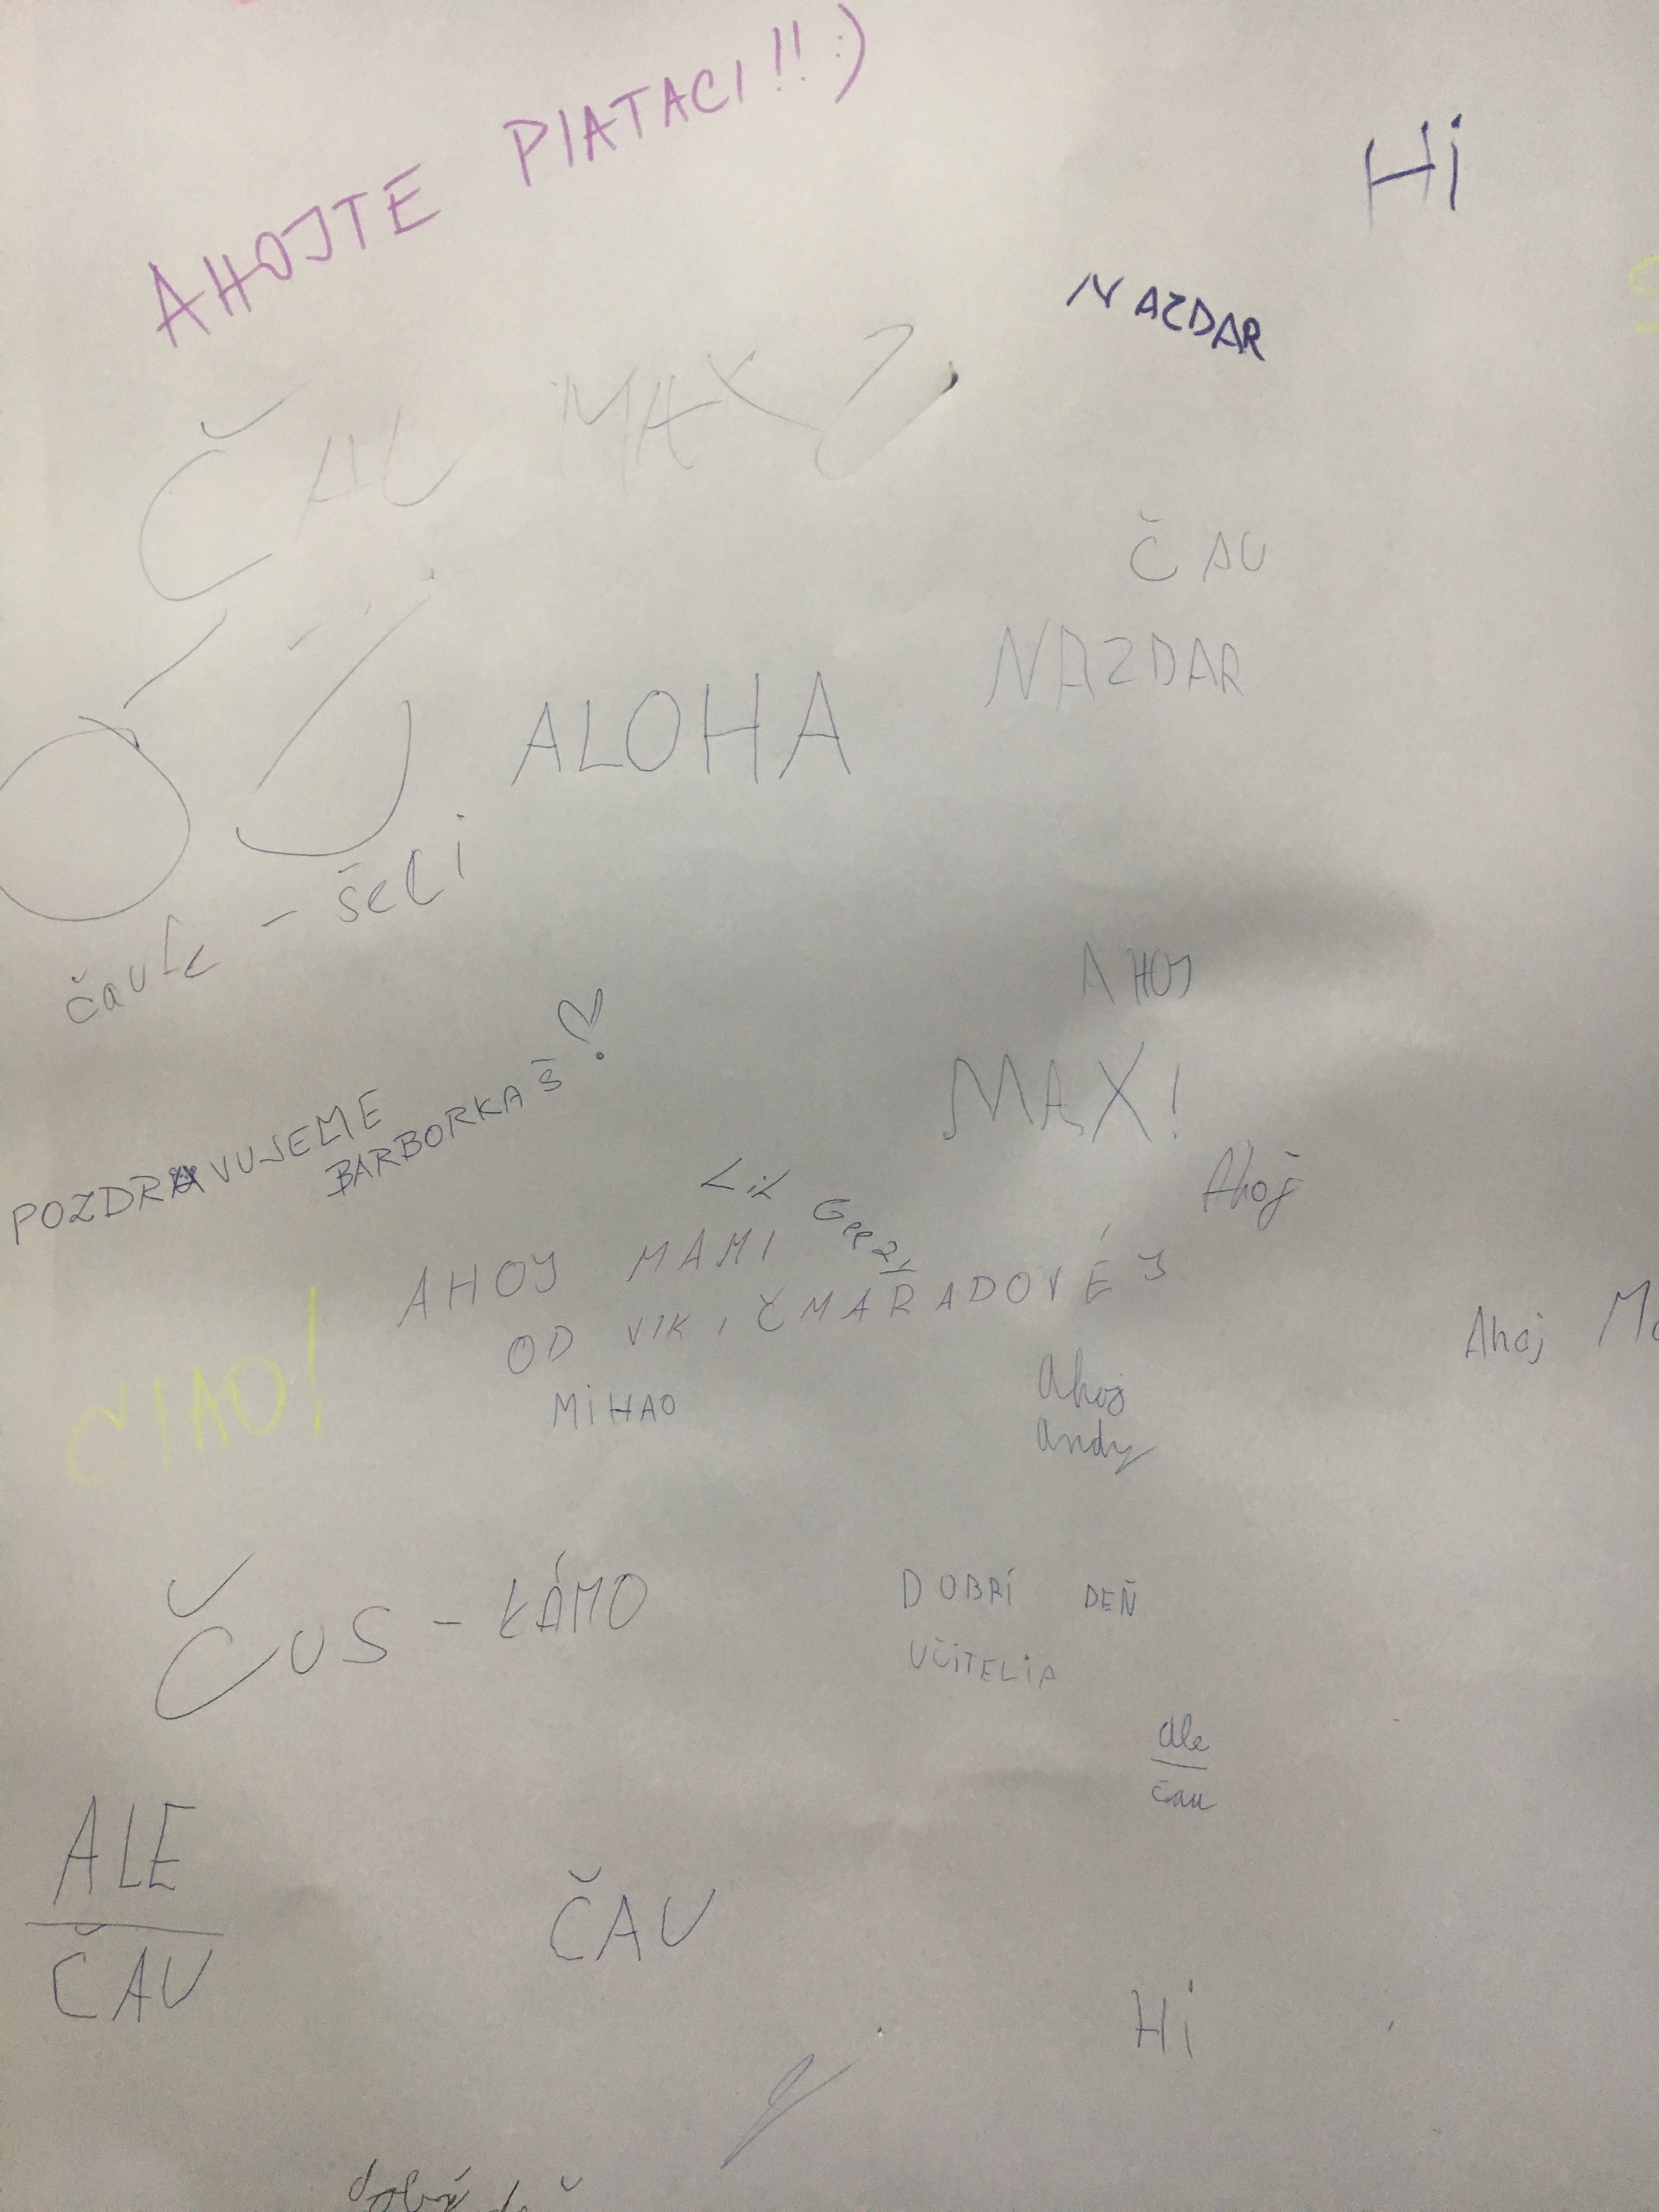 AHOJTE PIATACI!! :)
Hi
NAZDAR
ČAU MAX
ČAU
NAZDAR
ALOHA
čaute - šeci
AHOJ
MAX!
POZDRAVUJEME
BARBORKA Š
Ahoj
LiL
AHOJ MAMI
OD VIK, ČMARADOVÉJ
Ahoj
MiHAO
Ahoj
Andy
ČIAO!
ČUS - KÁMO
DOBRÍ DEŇ
UČiTELiA
ale
čau
ALE
ČAU
ČAU
Hi